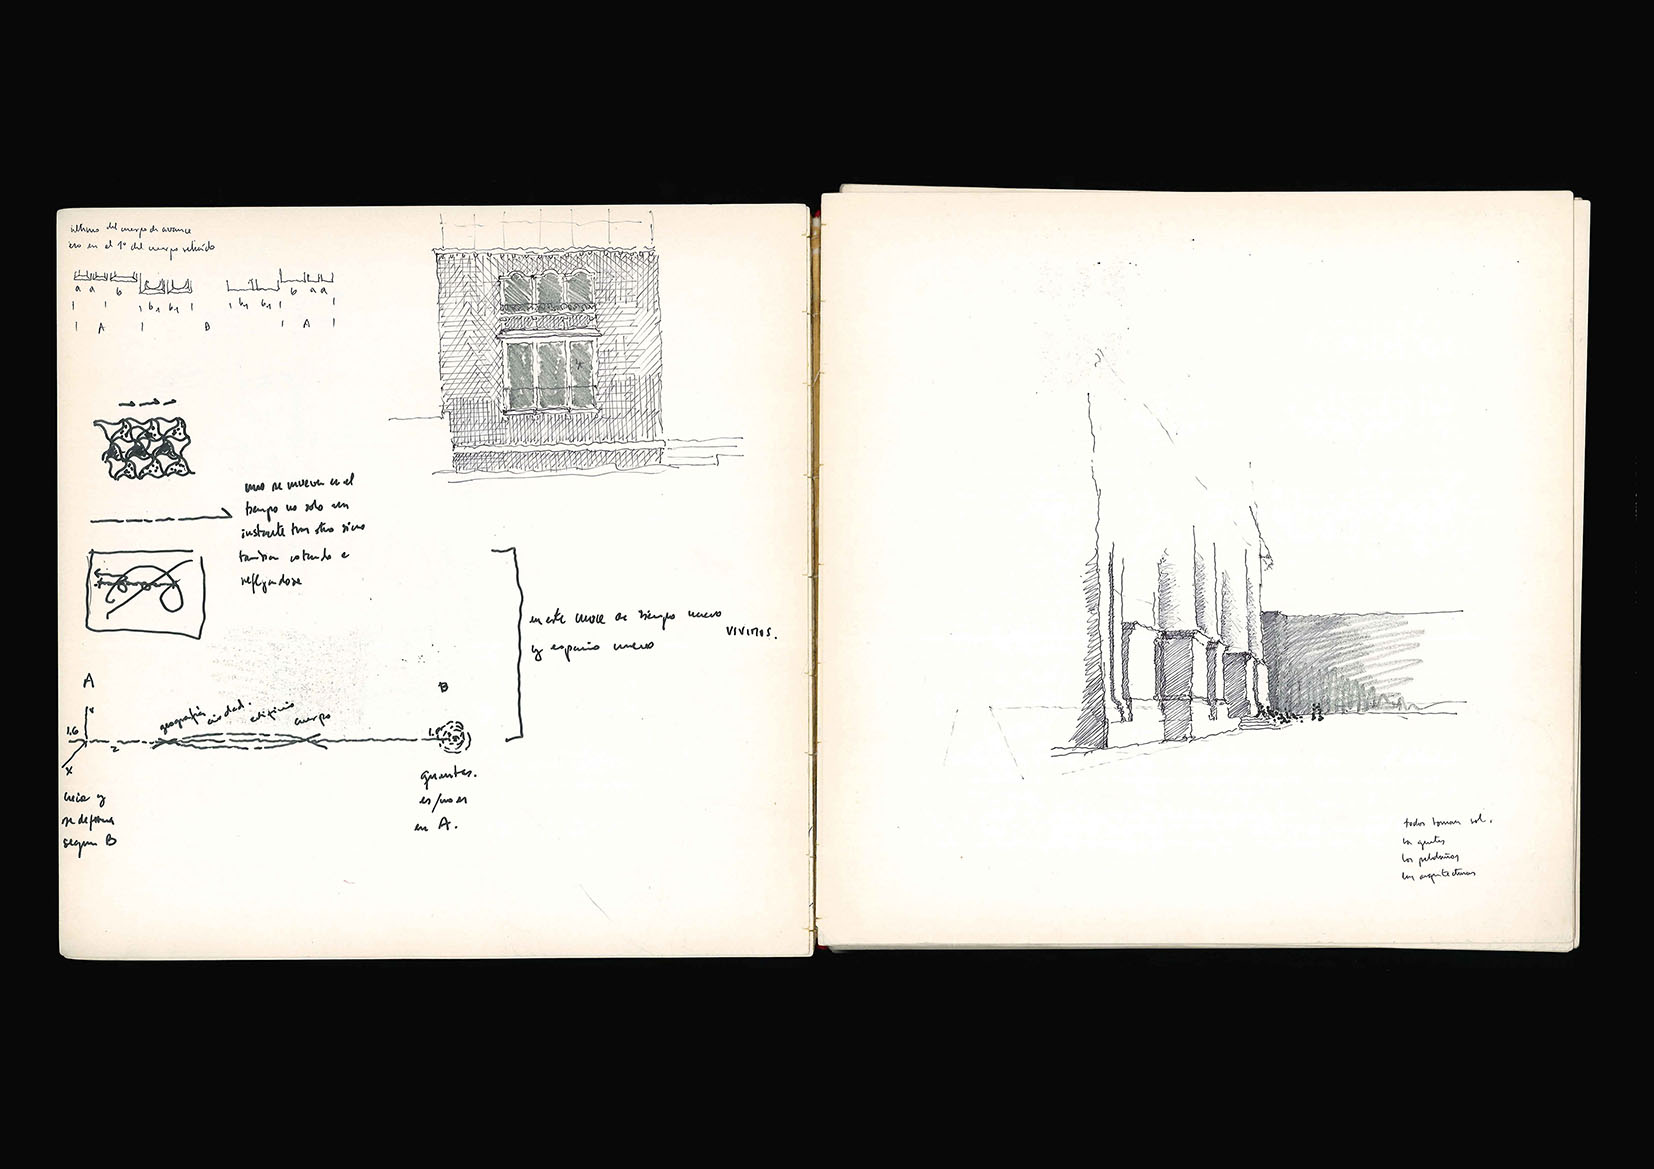 ultimo del cuerpo de avance
en el 1° del cuerpo
a a b b1 b1 b1 b1 b a a
A B A
uno se mueve en el
tiempo no solo un
instante tras otro sino
tambien estando e
reflejandose
en este cruce de tiempo nuevo
y espacio nuevo VIVIMOS.
A
B
geografia ciudad. edificio cuerpo
1.6
x
z
crece y
se deforma
segun B
gientes.
es/no es
en A.
todos toman sol.
la gentes
los peldaños
las arquitecturas